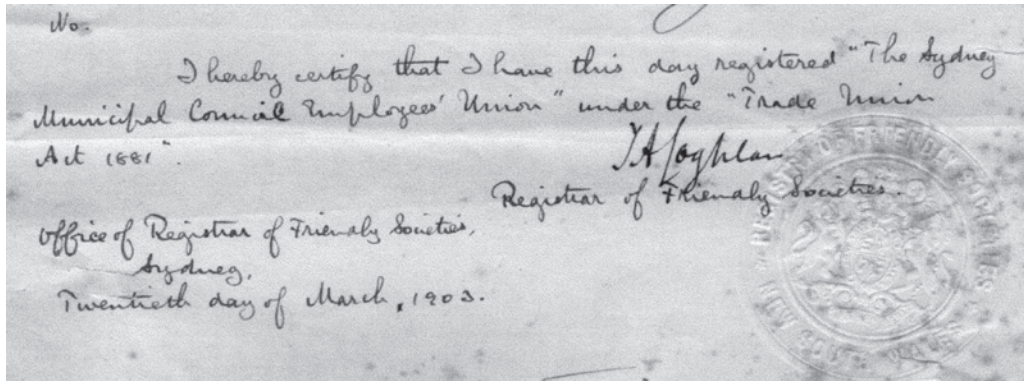 No.
I hereby certify that I have this day registered "The Sydney
Municipal Council Employees' Union" under the "Trade Union
Act 1881".
T A Coghlan
Registrar of Friendly Societies.
Office of Registrar of Friendly Societies,
Sydney,
Twentieth day of March, 1903.
REGISTRY OF FRIENDLY SOCIETIES
NEW SOUTH WALES